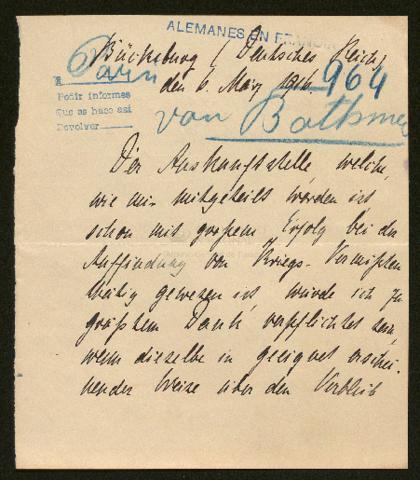 ALEMANES EN FRANCIA
Bückeburg / Deutsches Reich,
den 6. März 1916.
964
Pedir informes
Que se hace así
Devolver
von Bothmer
Der Auskunftstelle, welche,
wie mir mitgeteilt worden ist
schon mit großem Erfolg bei der
Auffindung von Kriegs-Vermißten
tätig gewesen ist, würde ich zu
größtem Dank verpflichtet sein,
wenn dieselbe in geeignet erschei-
nender Weise über den Verbleib